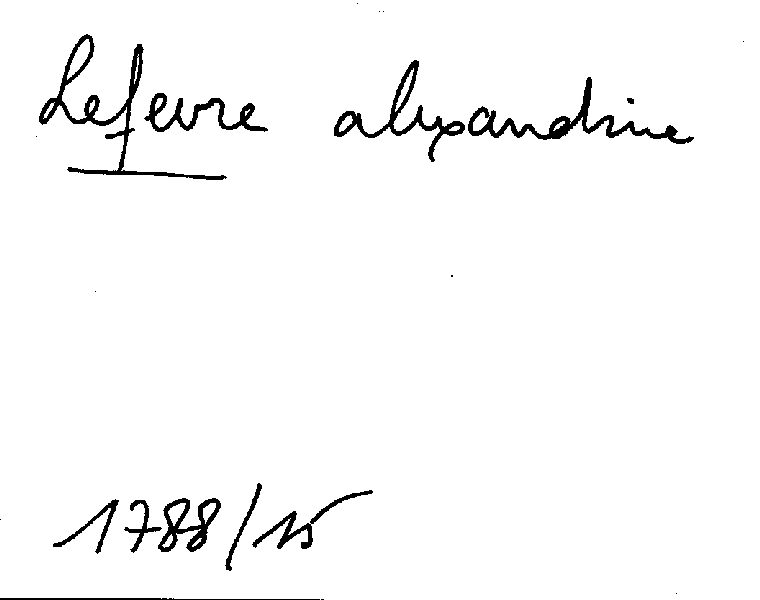 Lefevre alexandrine
1788/15